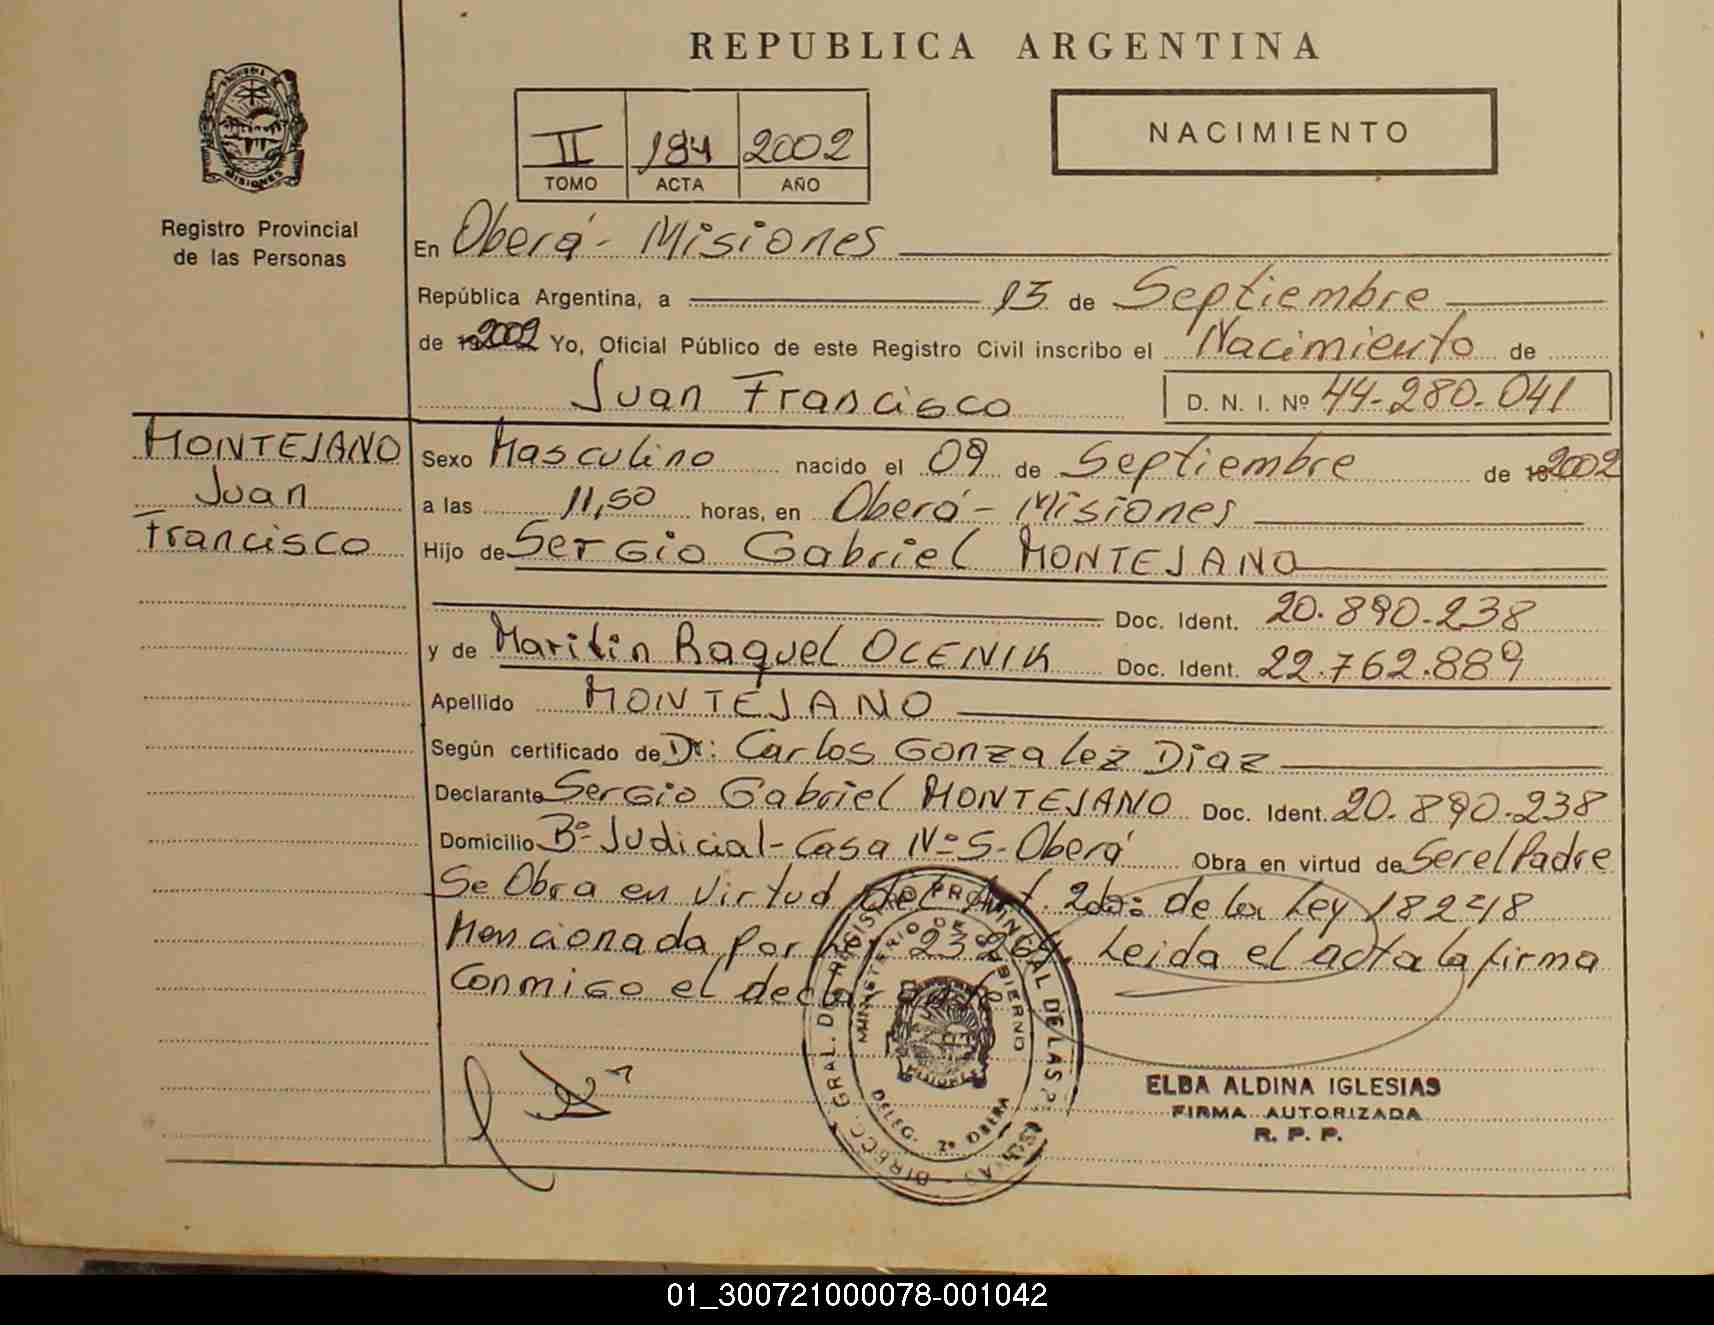 REPUBLICA ARGENTINA
II 184 2002
TOMO ACTA AÑO
NACIMIENTO
PROVINCIA DE
MISIONES
Registro Provincial
de las Personas
En Oberá - Misiones
República Argentina, a 13 de Septiembre
de 2002 Yo, Oficial Público de este Registro Civil inscribo el Nacimiento de
Juan Francisco D. N. I. Nº 44-280-041
MONTEJANO
Juan
Francisco
Sexo Masculino nacido el 09 de Septiembre de 2002
a las 11,50 horas, en Oberá - Misiones
Hijo de Sergio Gabriel MONTEJANO
Doc. Ident. 20.890.238
y de Marilin Raquel OCENIK Doc. Ident. 22.762.889
Apellido MONTEJANO
Según certificado de Dr: Carlos Gonzalez Diaz
Declarante Sergio Gabriel MONTEJANO Doc. Ident. 20.890.238
Domicilio Bº Judicial - Casa Nº 5 - Oberá Obra en virtud de Ser el Padre
Se Obra en virtud del Art. 2do: de la Ley 18248
Mencionada por Ley 23264. Leida el acta la firma
Conmigo el declarante
DIRECC. GRAL. DEL REGISTRO PROVINCIAL DE LAS PERSONAS
MINISTERIO DE GOBIERNO
MISIONES
DELEG. 2º OBERA
ELBA ALDINA IGLESIAS
FIRMA AUTORIZADA
R. P. P.
01_300721000078-001042